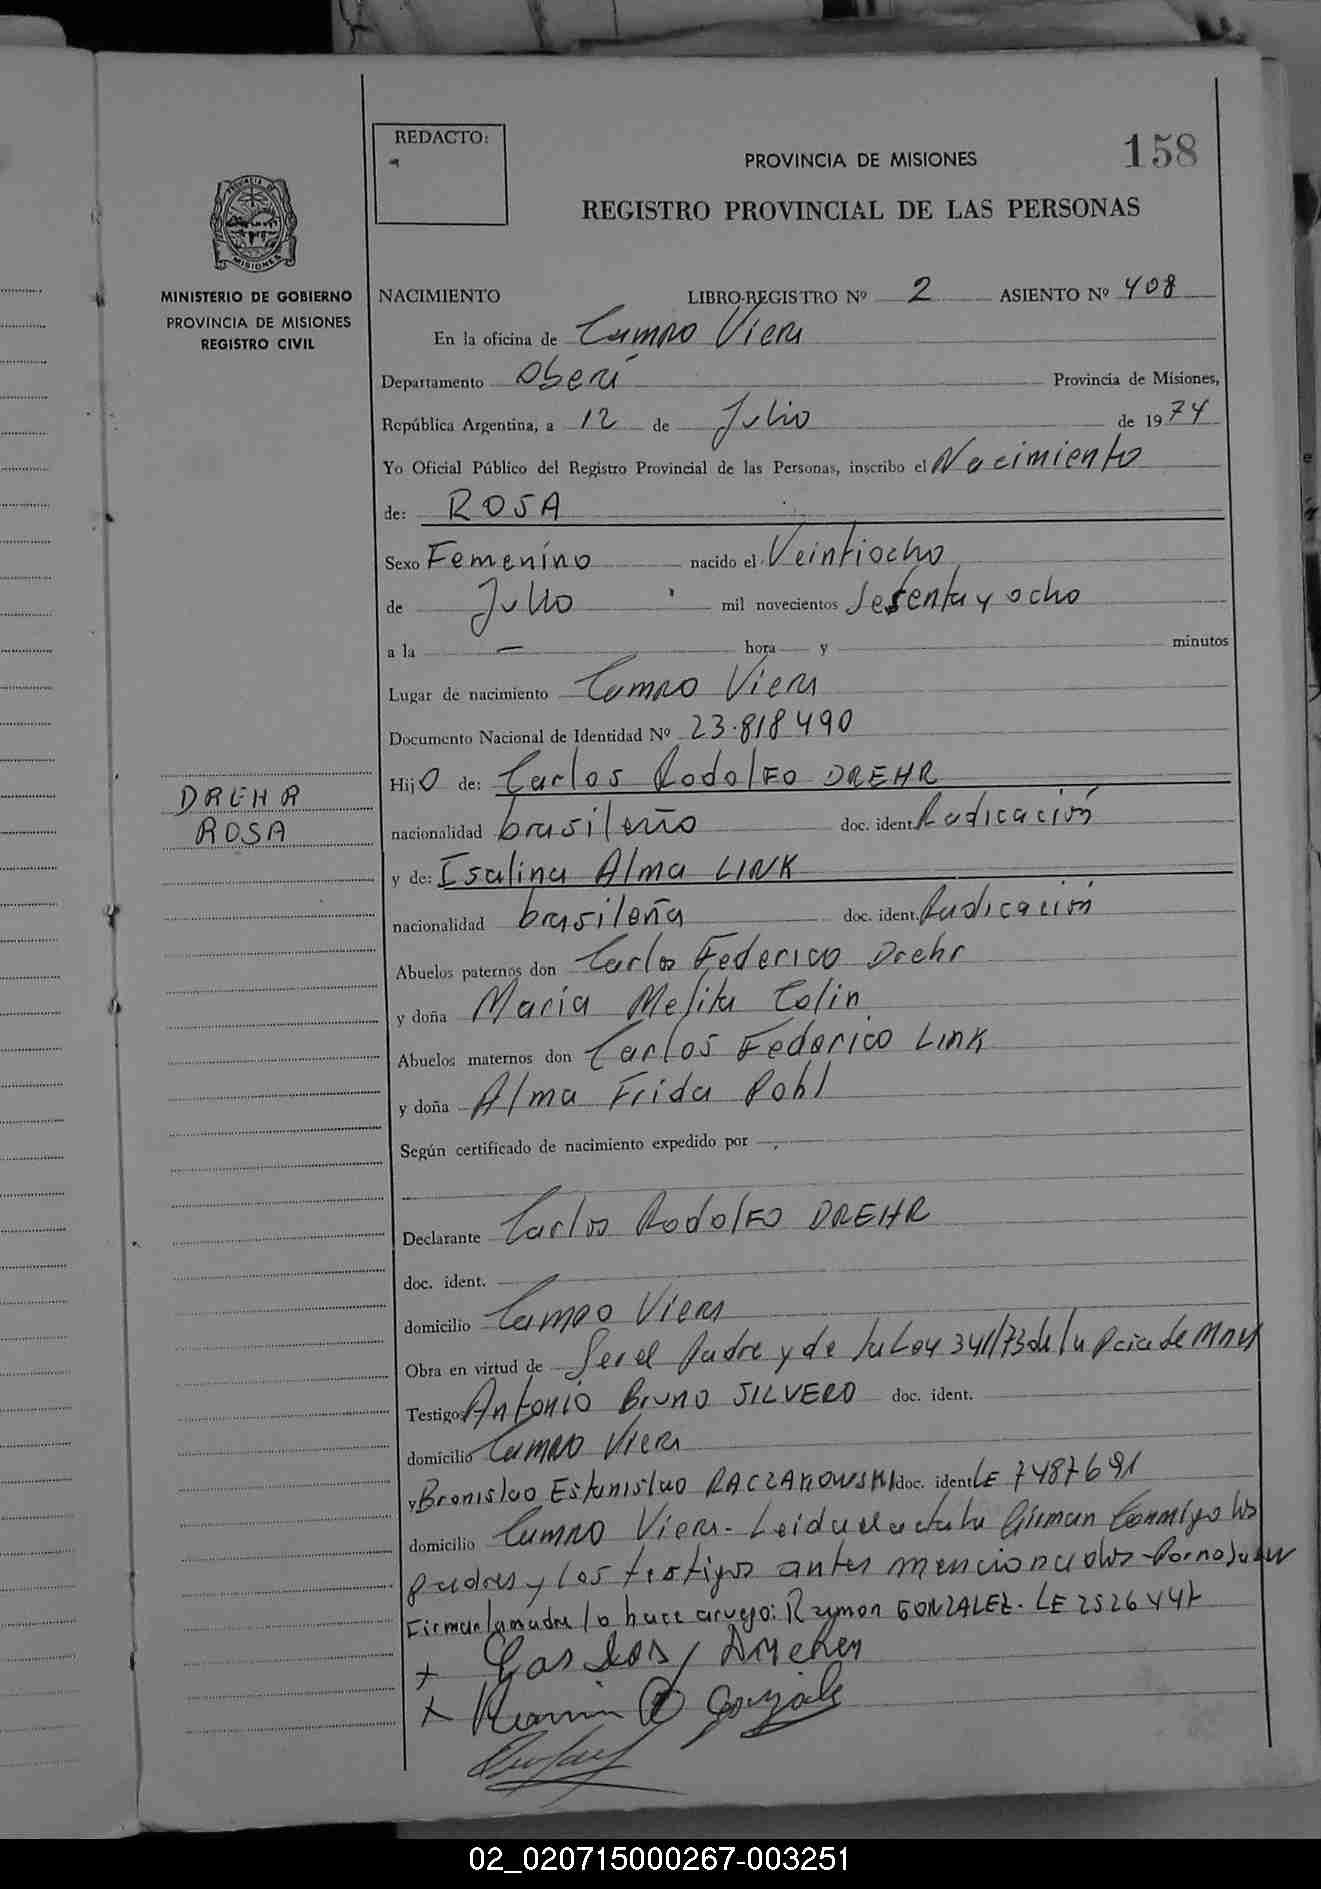 REDACTO:
158
PROVINCIA DE MISIONES
REGISTRO PROVINCIAL DE LAS PERSONAS
PROVINCIA DE
MISIONES
MINISTERIO DE GOBIERNO
PROVINCIA DE MISIONES
REGISTRO CIVIL
NACIMIENTO LIBRO-REGISTRO Nº 2 ASIENTO Nº 408
En la oficina de Campo Viera
Departamento Oberá Provincia de Misiones,
República Argentina, a 12 de Julio de 1974
Yo Oficial Público del Registro Provincial de las Personas, inscribo el Nacimiento
de: ROSA
Sexo Femenino nacido el Veintiocho
de Julio mil novecientos Sesenta y ocho
a la — hora y minutos
Lugar de nacimiento Campo Viera
Documento Nacional de Identidad Nº 23.818490
Hijo de: Carlos Rodolfo DREHR
DREHR
ROSA
nacionalidad brasileño doc. ident. Radicación
y de: Isalina Alma LINK
nacionalidad brasileña doc. ident. Radicación
Abuelos paternos don Carlos Federico Drehr
y doña María Melita Colin
Abuelos maternos don Carlos Federico LINK
y doña Alma Frida Pohl
Según certificado de nacimiento expedido por
Declarante Carlos Rodolfo DREHR
doc. ident.
domicilio Campo Viera
Obra en virtud de Ser el Padre y de la Ley 341/73 de la Pcia de Mnes
Testigo: Antonio Bruno SILVERO doc. ident.
domicilio Campo Viera
y Bronislao Estanislao RACZAKOWSKI doc. ident. LE 7487691
domicilio Campo Viera - Leida el acta la Firman Conmigo los
padres y los testigos antes mencionados - Por no saber
Firmar la madre lo hace a ruego: Ramon GONZALEZ - LE 2526447
+
+ Ramon Gonzale
02_020715000267-003251